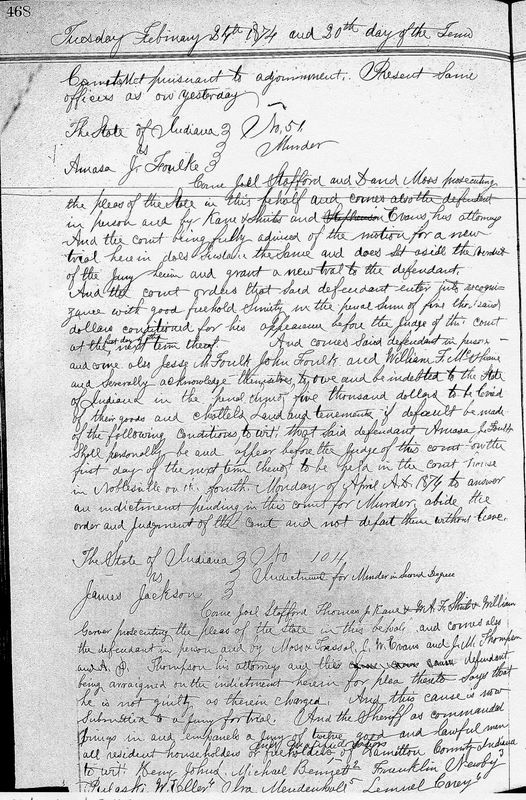 468
Tuesday Febinary 24th 1874 and 20th day of the Term
Court Met pursuant to adjournment. Present Same
officers as on yesterday
The State of Indiana } No. 51
vs } Murder
Amasa J. Foulke }
Come Joel Stafford and David Moss prosecuting
the pleas of the State in this behalf and comes also the defendant
in person and by Kane and Evans his attorneys
And the court being fully advised of the motion for a new
trial herein does Sustain the Same and does set aside the verdict
of the Jury herein and grant a new trial to the defendant.
And the court orders that said defendant enter into recogni-
zance with good freehold Surety in the penal Sum of five thousand
dollars conditioned for his appearance before the Judge of this court
at the first day of the next term thereof. And comes Said defendant in person
and come also Jesse M Foulk John Foulk and William F.
and Severally acknowledge themselves to owe and be indebted to the State
of Indiana in the penal sum of five thousand dollars to be levied
of their goods and chattels Land and tenements if default be made
of the following conditions to wit: that said defendant Amasa J. Foulk
Shall personally be and appear before the Judge of this court on the
first day of the next term thereof to be held in the court house
in Noblesville on the fourth Monday of April A.D. 1874 to answer
an indictment pending in this court for Murder, abide the
order and Judgment of the court and not depart thence without leave.
The State of Indiana } No 104
vs } Indictment for Murder in Second Degree
James Jackson }
Come Joel Stafford Thomas J Kane & W. A. F. Shirts William
Garver prosecuting the pleas of the State in this behalf and comes also
the defendant in person and by Moss & Trissal, C. W. Evans and J. M. Thompson
and A. P. Thompson his attorneys and this defendant
being arraigned on the indictment herein for plea thereto Says that
he is not guilty as therein charged. And this cause is now
Submitted to a Jury for trial. And the Sheriff as commanded
brings in and empanels a Jury of twelve good and lawful men
all resident householders & freeholders of Hamilton County Indiana
to wit: Johns, Michael Bennett Franklin Newby
Pulaski W. Mendenhall Lemuel Carey